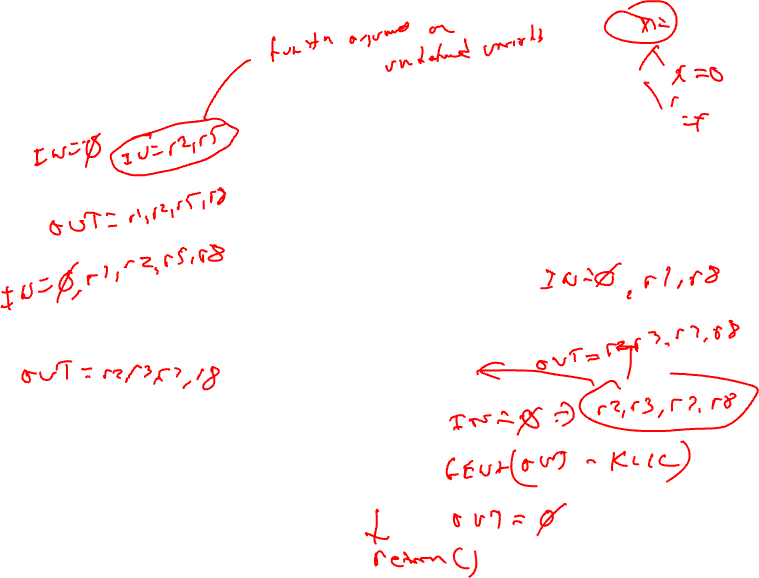 x=
function argument or
undefined variable
x=0
r
=f
IN=∅ IN=r2,r5
OUT=r1,r2,r5,r8
IN=∅,r1,r2,r5,r8
IN=∅,r7,r8
OUT=r2,r3,r7,r8
OUT=r2,r3,r7,r8
IN=∅ => r2,r3,r7,r8
GEN+(OUT - KILL)
OUT=∅
return()